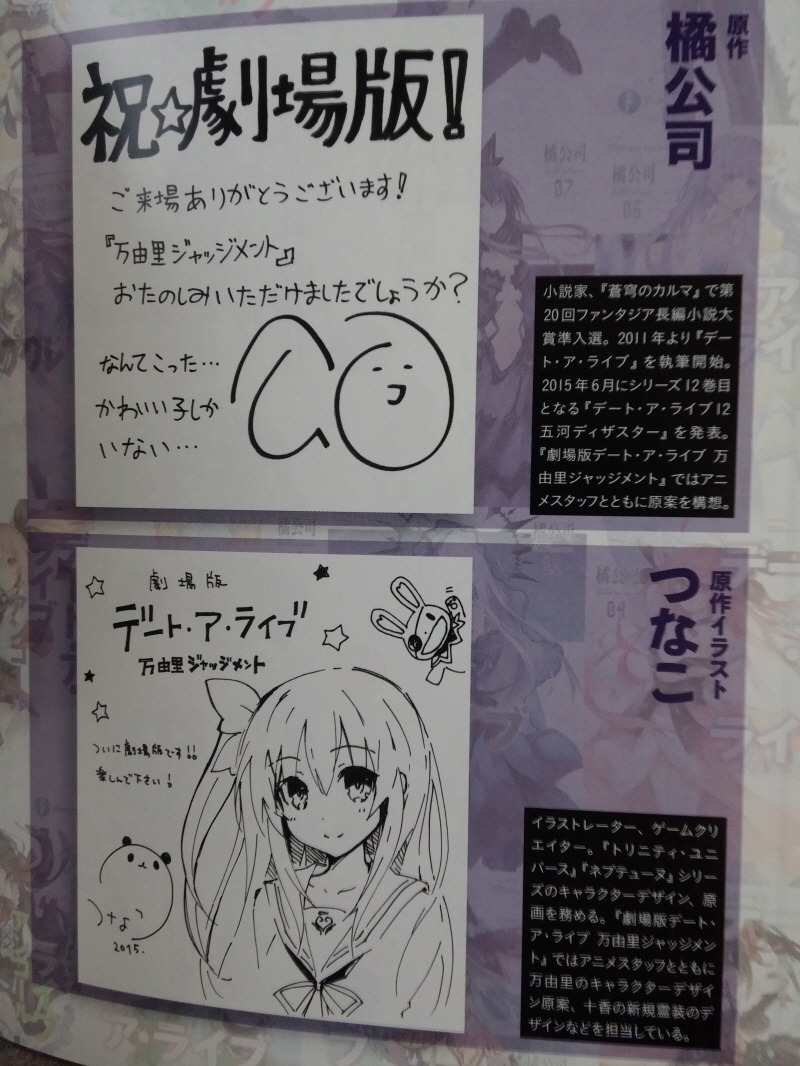 原作
橘公司
祝☆劇場版!
ご来場ありがとうございます!
『万由里ジャッジメント』
おたのしみいただけましたでしょうか?
なんてこった…
かわいい子しか
いない…
小説家、『蒼穹のカルマ』で第
20回ファンタジア長編小説大
賞準入選。2011年より『デー
ト・ア・ライブ』を執筆開始。
2015年6月にシリーズ12巻目
となる『デート・ア・ライブ12
五河ディザスター』を発表。
『劇場版デート・ア・ライブ 万
由里ジャッジメント』ではアニ
メスタッフとともに原案を構想。
橘公司
07
橘公司
06
橘公司
橘公司
橘公司
04
原作イラスト
つなこ
劇場版
デート・ア・ライブ
万由里ジャッジメント
ついに劇場版でーす!!
楽しんで下さい!
つなこ
2015.
イラストレーター、ゲームクリ
エイター。『トリニティ・ユニ
バース』『ネプテューヌ』シリー
ズのキャラクターデザイン、原
画を務める。『劇場版デート・
ア・ライブ 万由里ジャッジメン
ト』ではアニメスタッフとともに
万由里のキャラクターデザイ
ン原案、十香の新規霊装のデ
ザインなどを担当している。
ア・ライブ